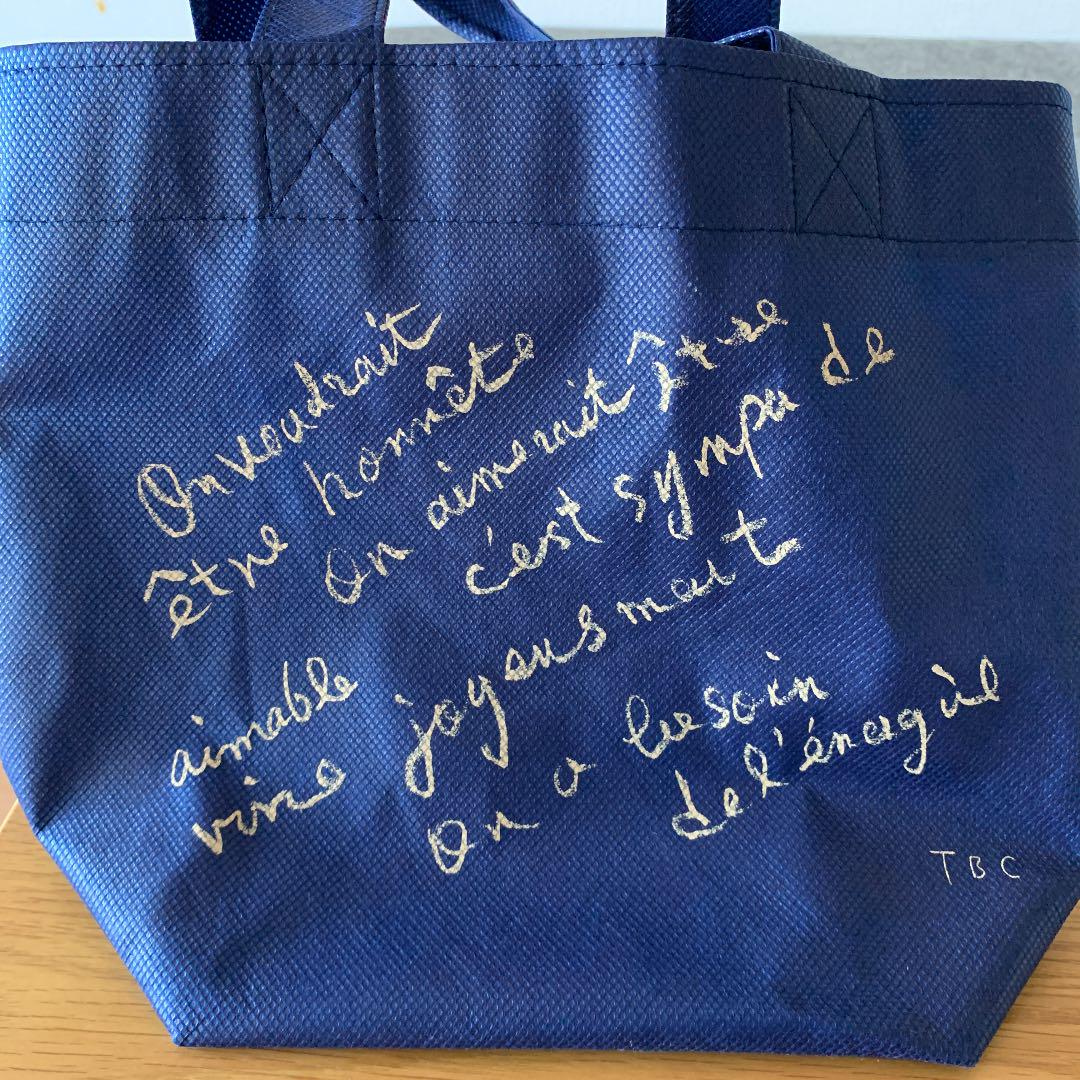 On voudrait
être honnête
On aimerait être
aimable c'est sympa de
vivre joyeusment
On a besoin
de l'énergie
TBC